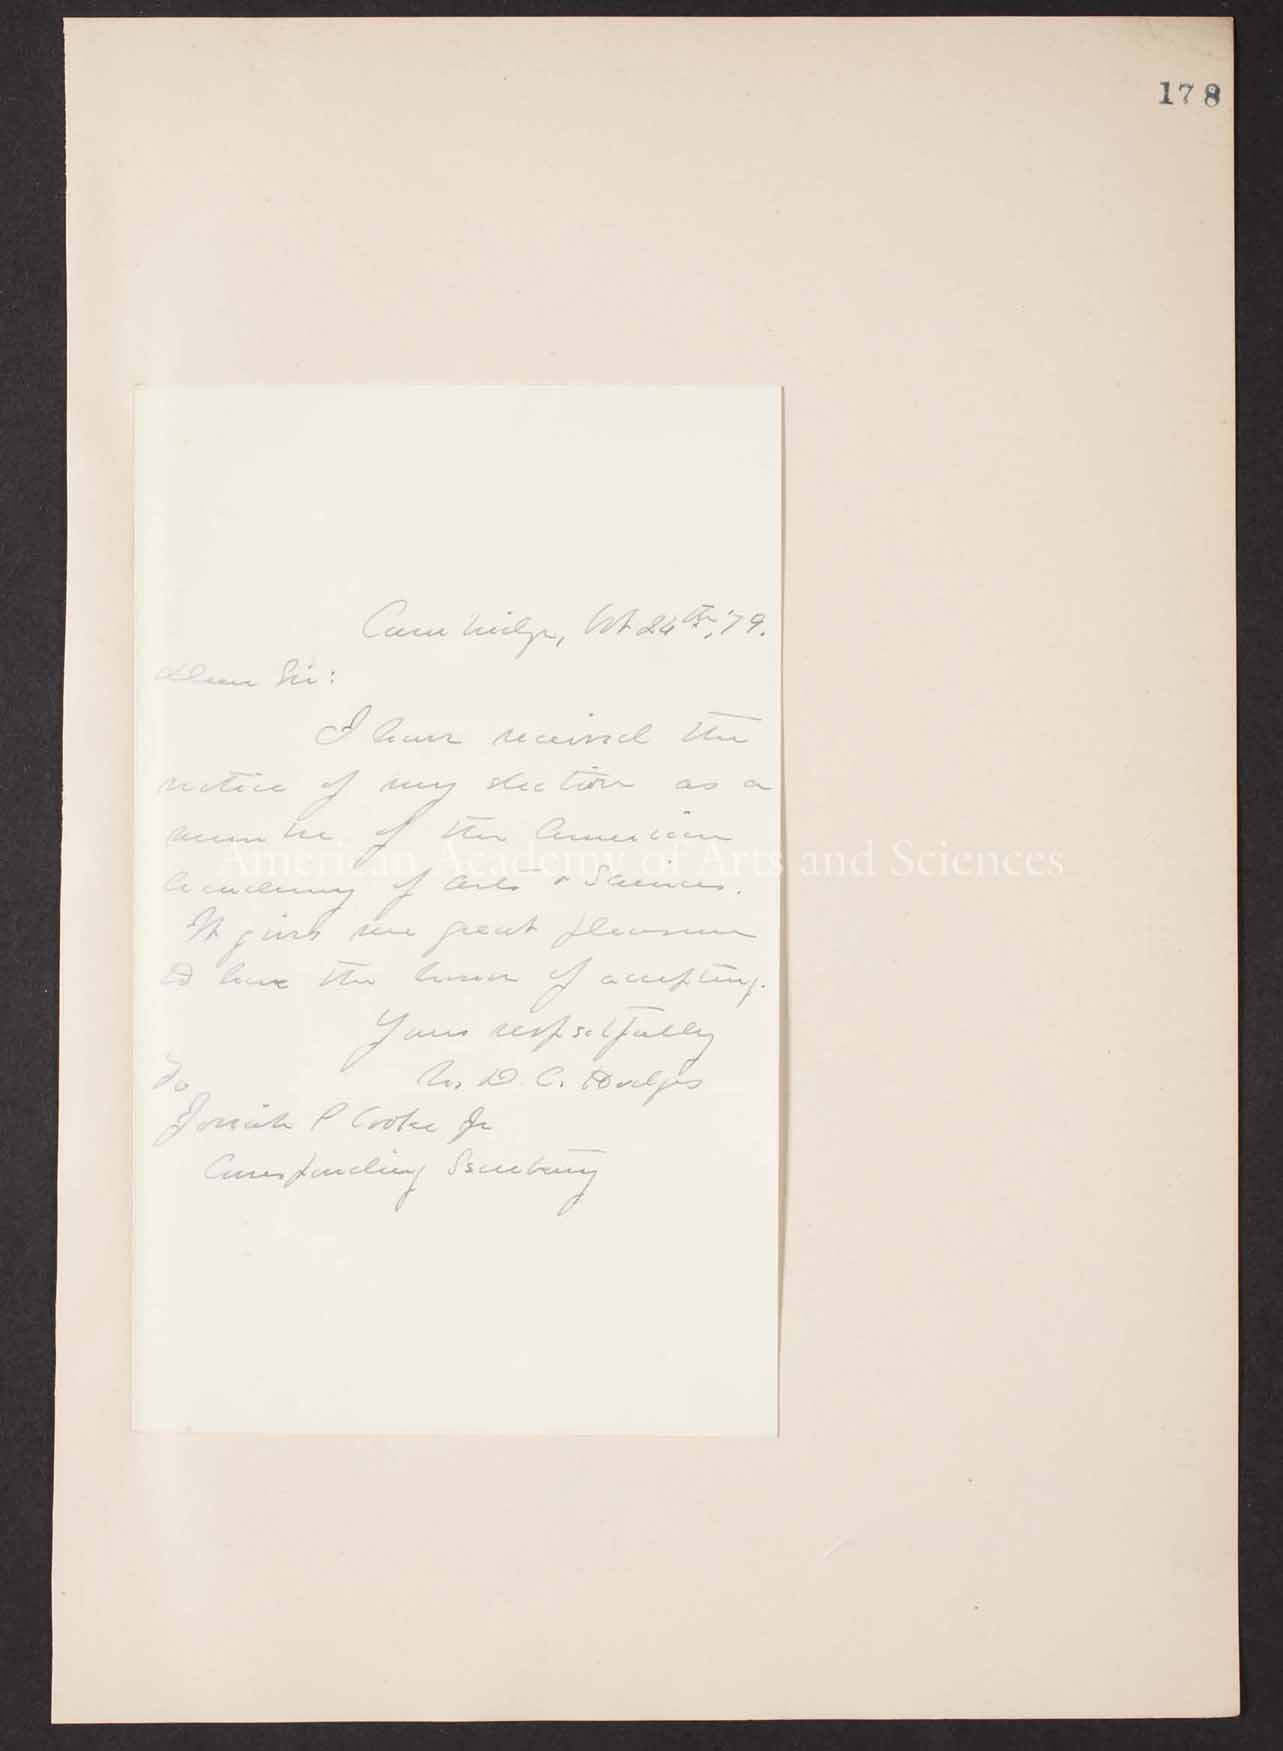 178
Cambridge, Oct 24th, '79.
Dear Sir:
I have received the
notice of my election as a
member of the American
American Academy of Arts and Sciences
Academy of Arts & Sciences.
It gives me great pleasure
to have the honor of accepting.
Yours respectfully
N. D. C. Hodges
To
Josiah P Cooke Jr
Corresponding Secretary